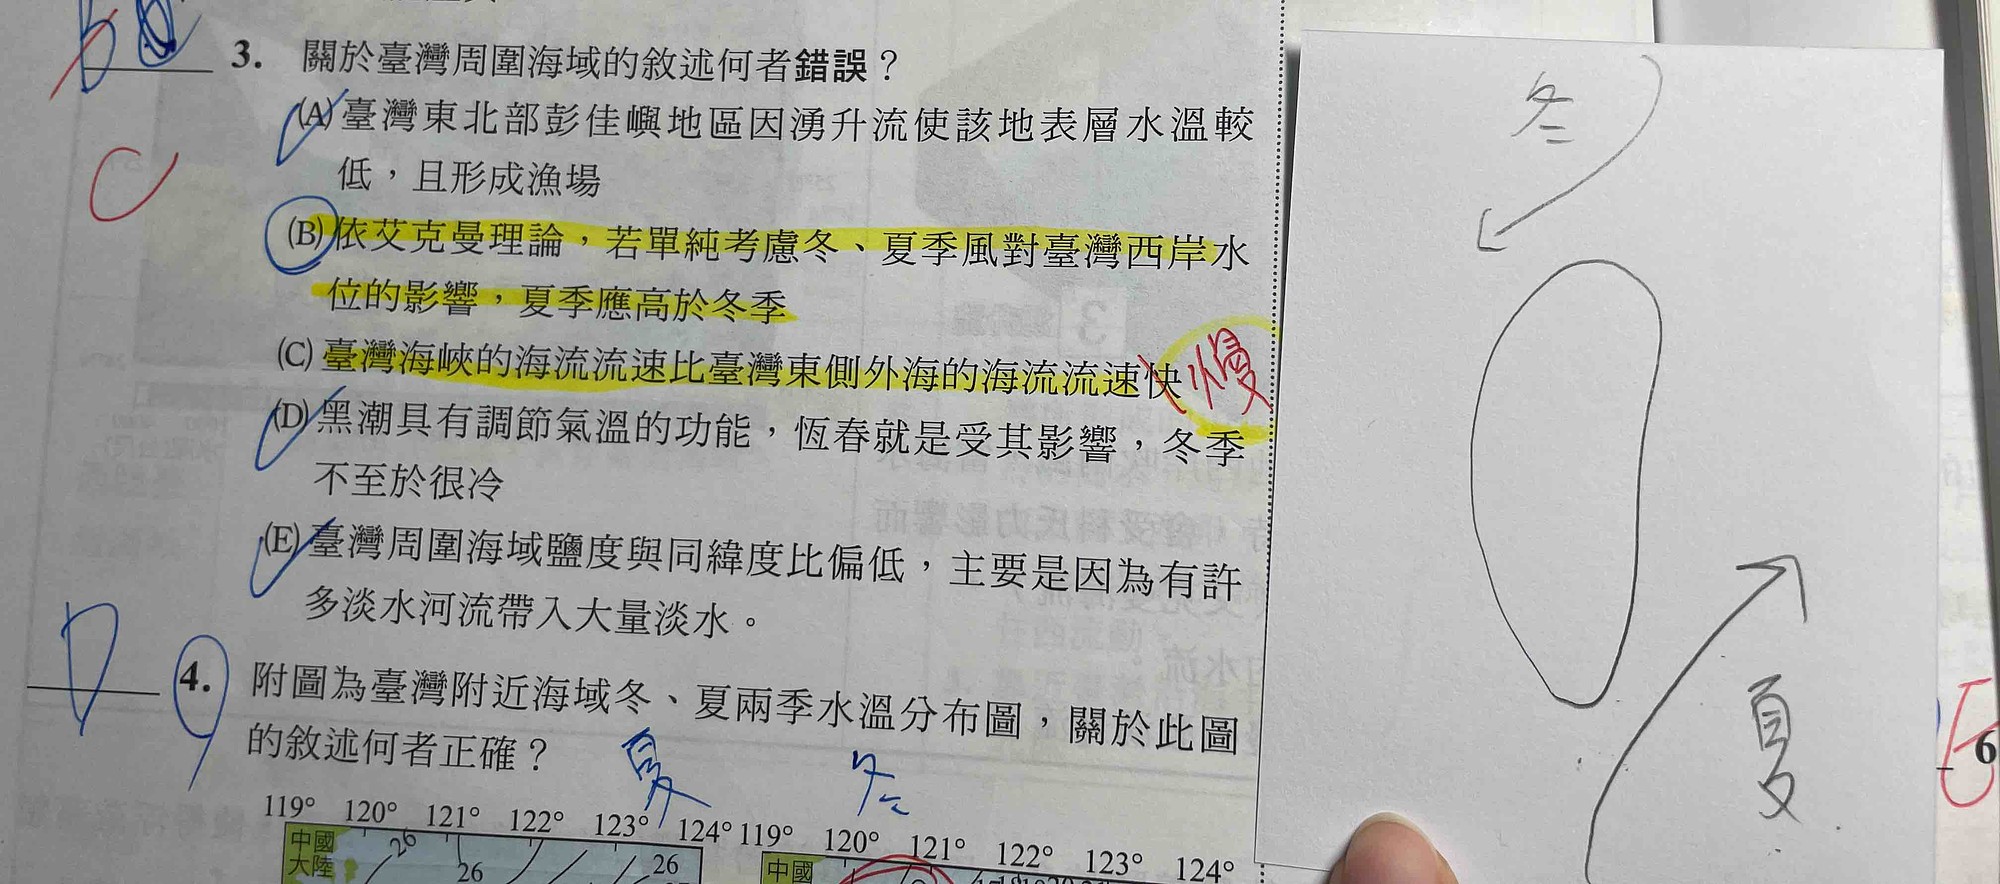 3. 關於臺灣周圍海域的敘述何者錯誤？
(A)臺灣東北部彭佳嶼地區因湧升流使該地表層水溫較
低，且形成漁場
C
(B)依艾克曼理論，若單純考慮冬、夏季風對臺灣西岸水
位的影響，夏季應高於冬季
(C)臺灣海峽的海流流速比臺灣東側外海的海流流速快 慢
(D)黑潮具有調節氣溫的功能，恆春就是受其影響，冬季
不至於很冷
(E)臺灣周圍海域鹽度與同緯度比偏低，主要是因為有許
多淡水河流帶入大量淡水。
D 4. 附圖為臺灣附近海域冬、夏兩季水溫分布圖，關於此圖
的敘述何者正確？
夏 冬
119° 120° 121° 122° 123° 124° 119° 120° 121° 122° 123° 124°
中國
大陸
26
26
26
中國
冬
夏
E
6